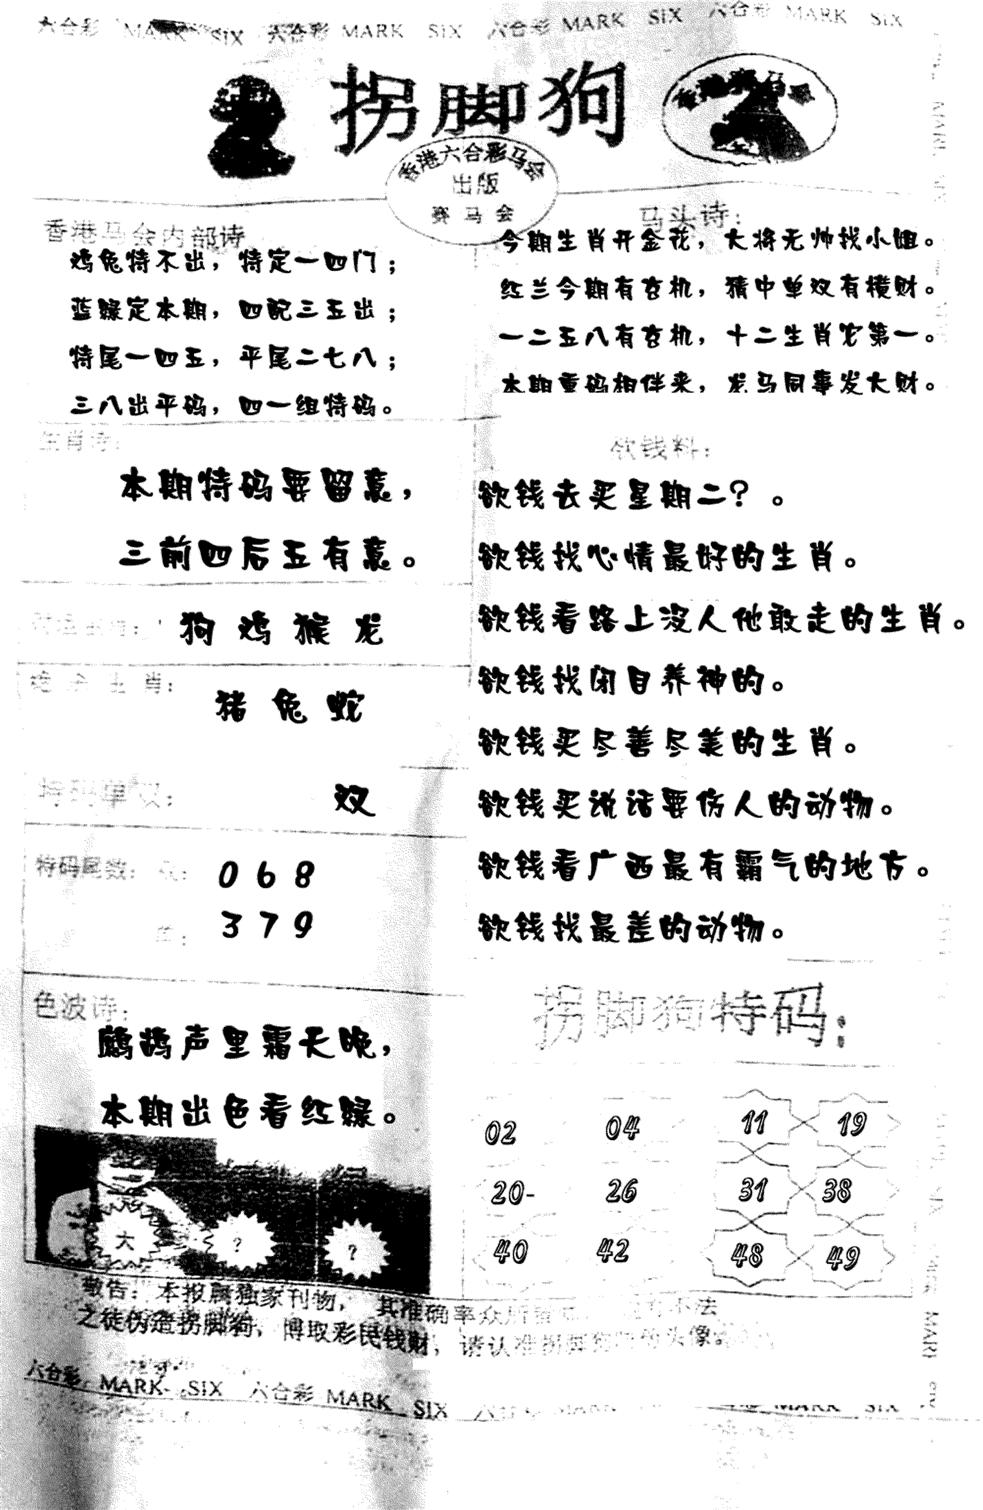 六合彩 MARK SIX 六合彩 MARK SIX 六合彩 MARK SIX 六合彩 MARK SIX
拐脚狗
香港赛马会
香港六合彩马会
出版
赛马会
香港马会内部诗
鸡兔特不出，特定一四门；
蓝绿定本期，四配三五出；
特尾一四五，平尾二七八；
三八出平码，四一组特码。
马头诗：
今期生肖开金花，大将无帅找小姐。
红兰今期有玄机，猜中单双有横财。
一二五八有玄机，十二生肖它第一。
本期重码相伴来，发马同事发大财。
生肖诗：
本期特码要留意，
三前四后五有意。
狗鸡猴龙
绝杀生肖：
猪兔蛇
特码单双：
双
特码尾数：双：
068
单：
379
色波诗：
鹧鸪声里霜天晚，
本期出色看红绿。
大 ？ ？
欲钱料：
欲钱去买星期二？。
欲钱找心情最好的生肖。
欲钱看路上没人他敢走的生肖。
欲钱找闭目养神的。
欲钱买尽善尽美的生肖。
欲钱买说话要伤人的动物。
欲钱看广西最有霸气的地方。
欲钱找最差的动物。
拐脚狗特码：
02 04 11 19
20- 26 31 38
40 42 48 49
敬告：本报属独家刊物，其准确率众所
不法
之徒伪造拐脚狗，博取彩民钱财，请认准拐脚狗
头像
六合彩 MARK SIX 六合彩 MARK SIX 六合彩 MARK SIX
MARK SIX